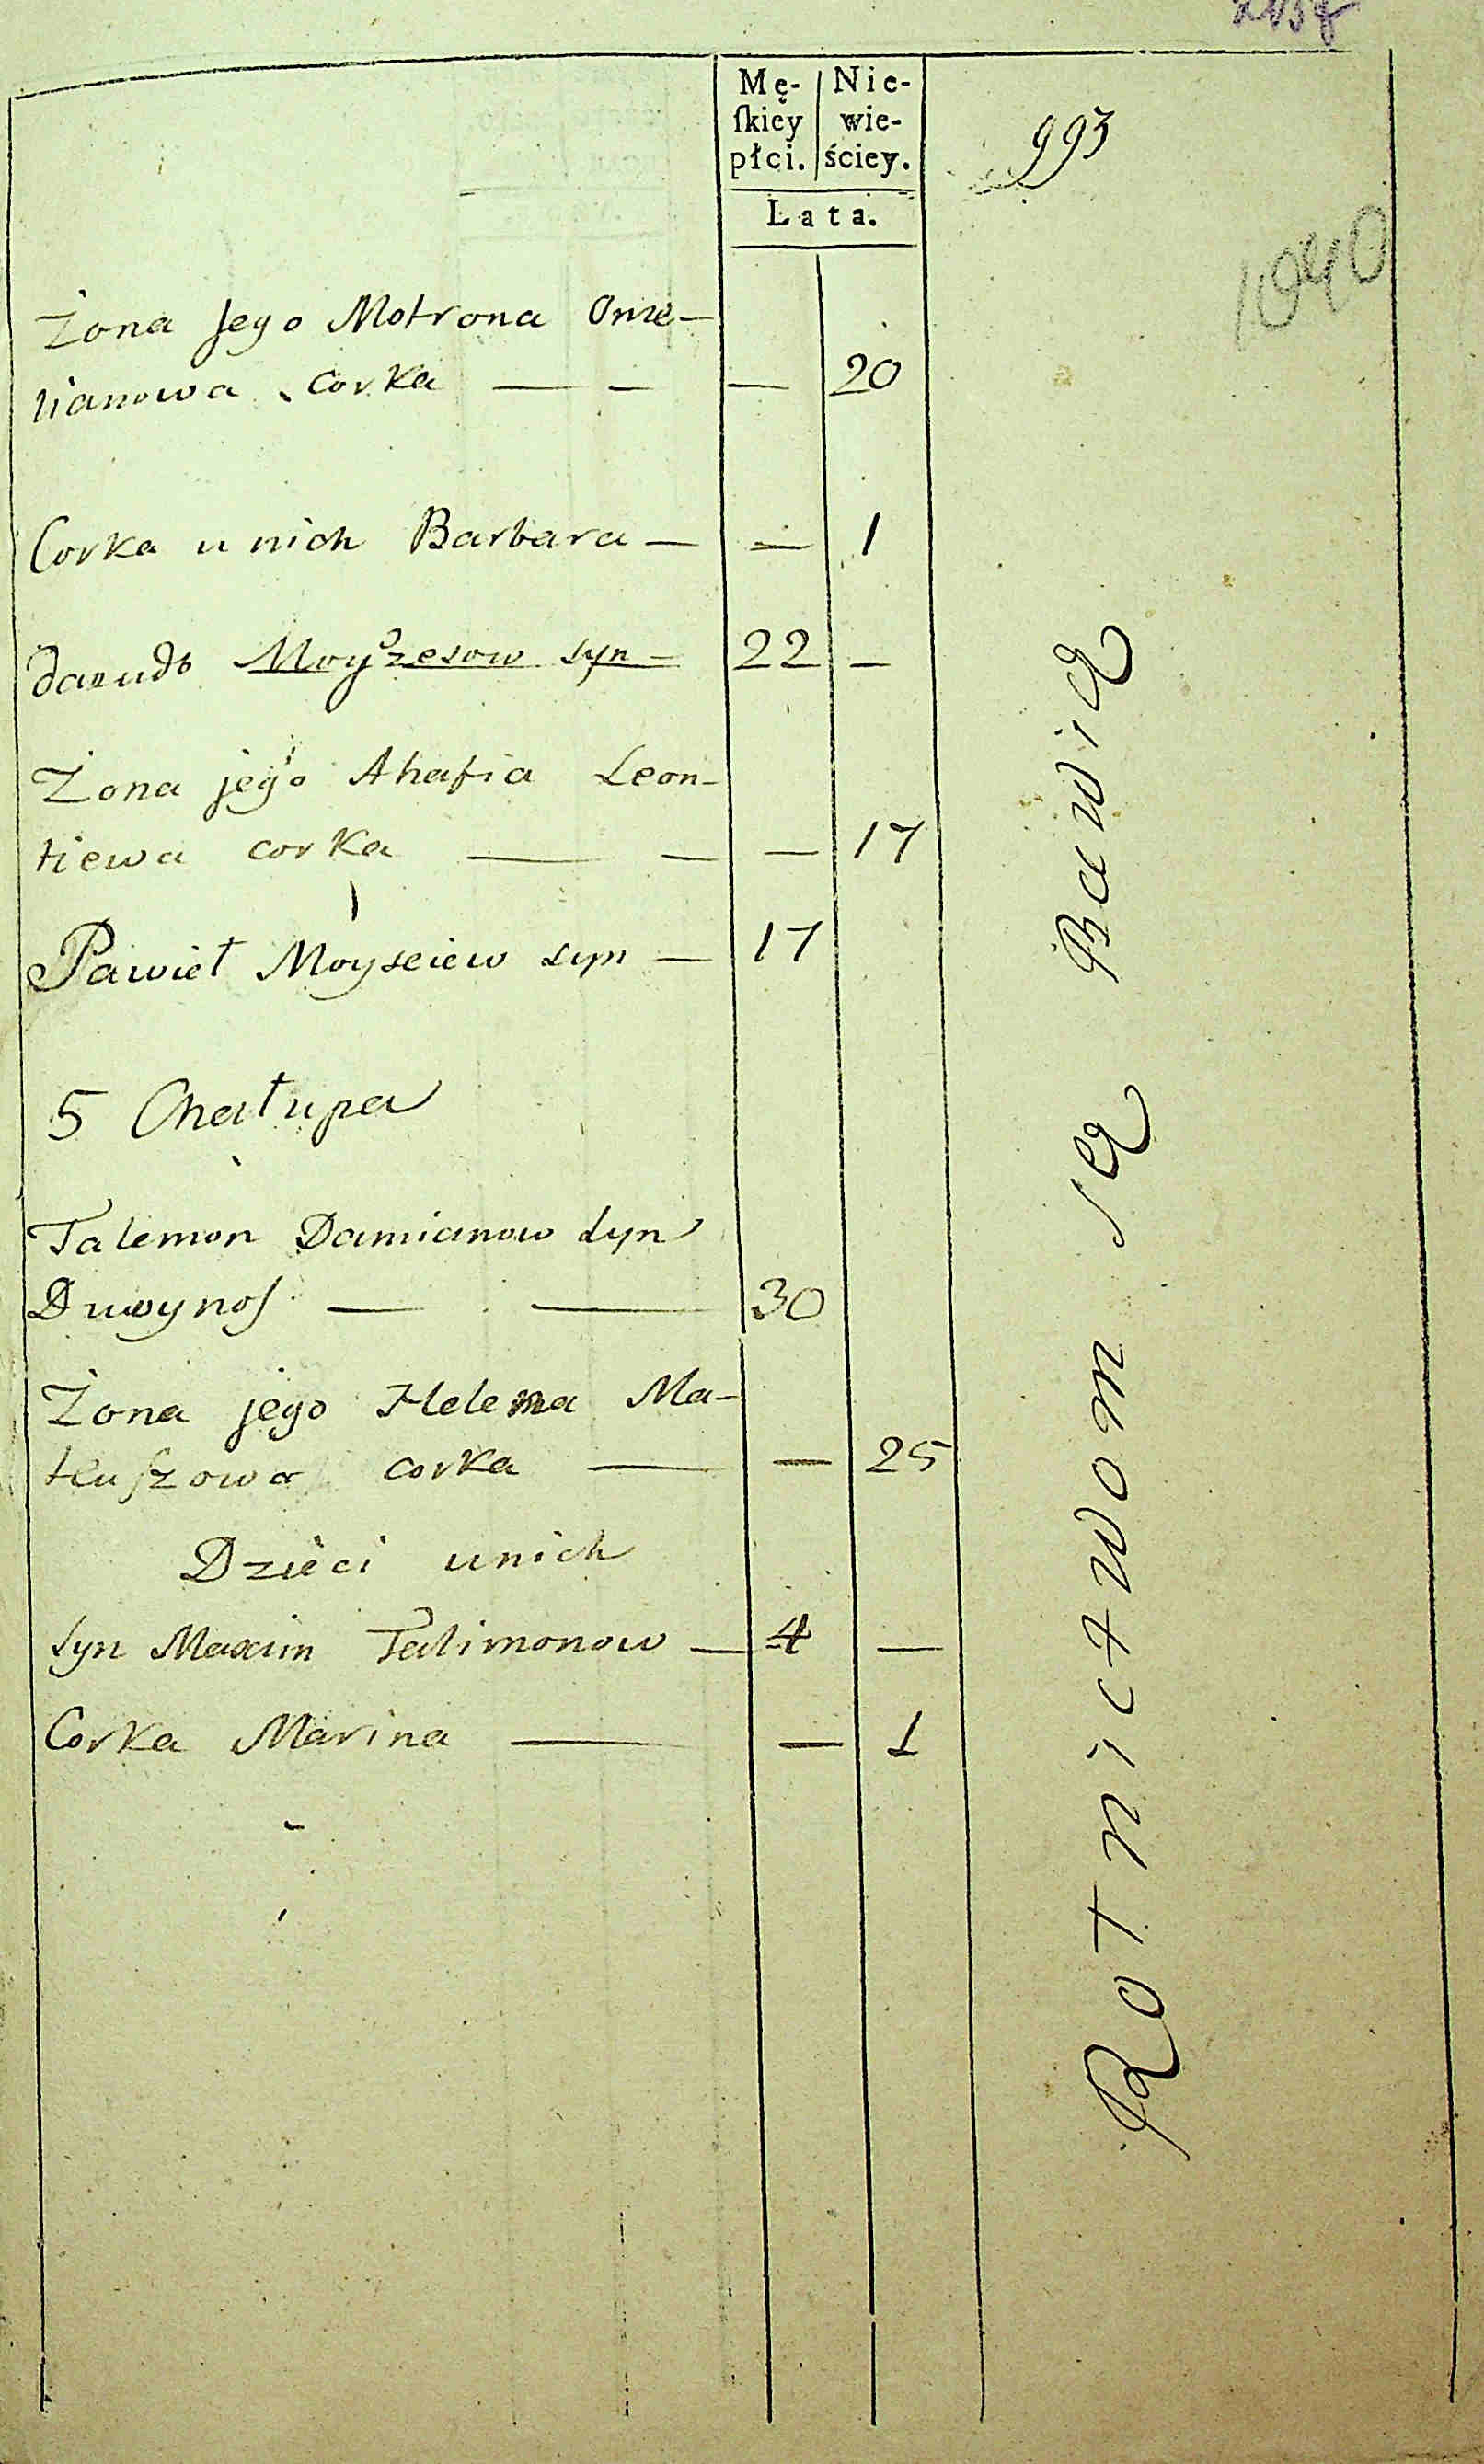 Mę- Nie-
ſkiey wie-
płci. ściey.
Lata.
993
1040
Żona Jego Motrona Ome-
lianowa Corka — — — 20
Corka u nich Barbara — — 1
Moyzesow syn — 22 —
Żona jego Ahafia Leon-
tiewa corka — — — 17
Pawieł Moyseiew syn — 17
5 Chałupa
Talemon Damianow syn
Duwynoſ — — 30
Żona jego Helena Ma-
teuſzowa corka — — 25
Dzieci unich
syn Maxim Talimonow — 4 —
Corka Marina — — 1
Rolnictwom są Bawią